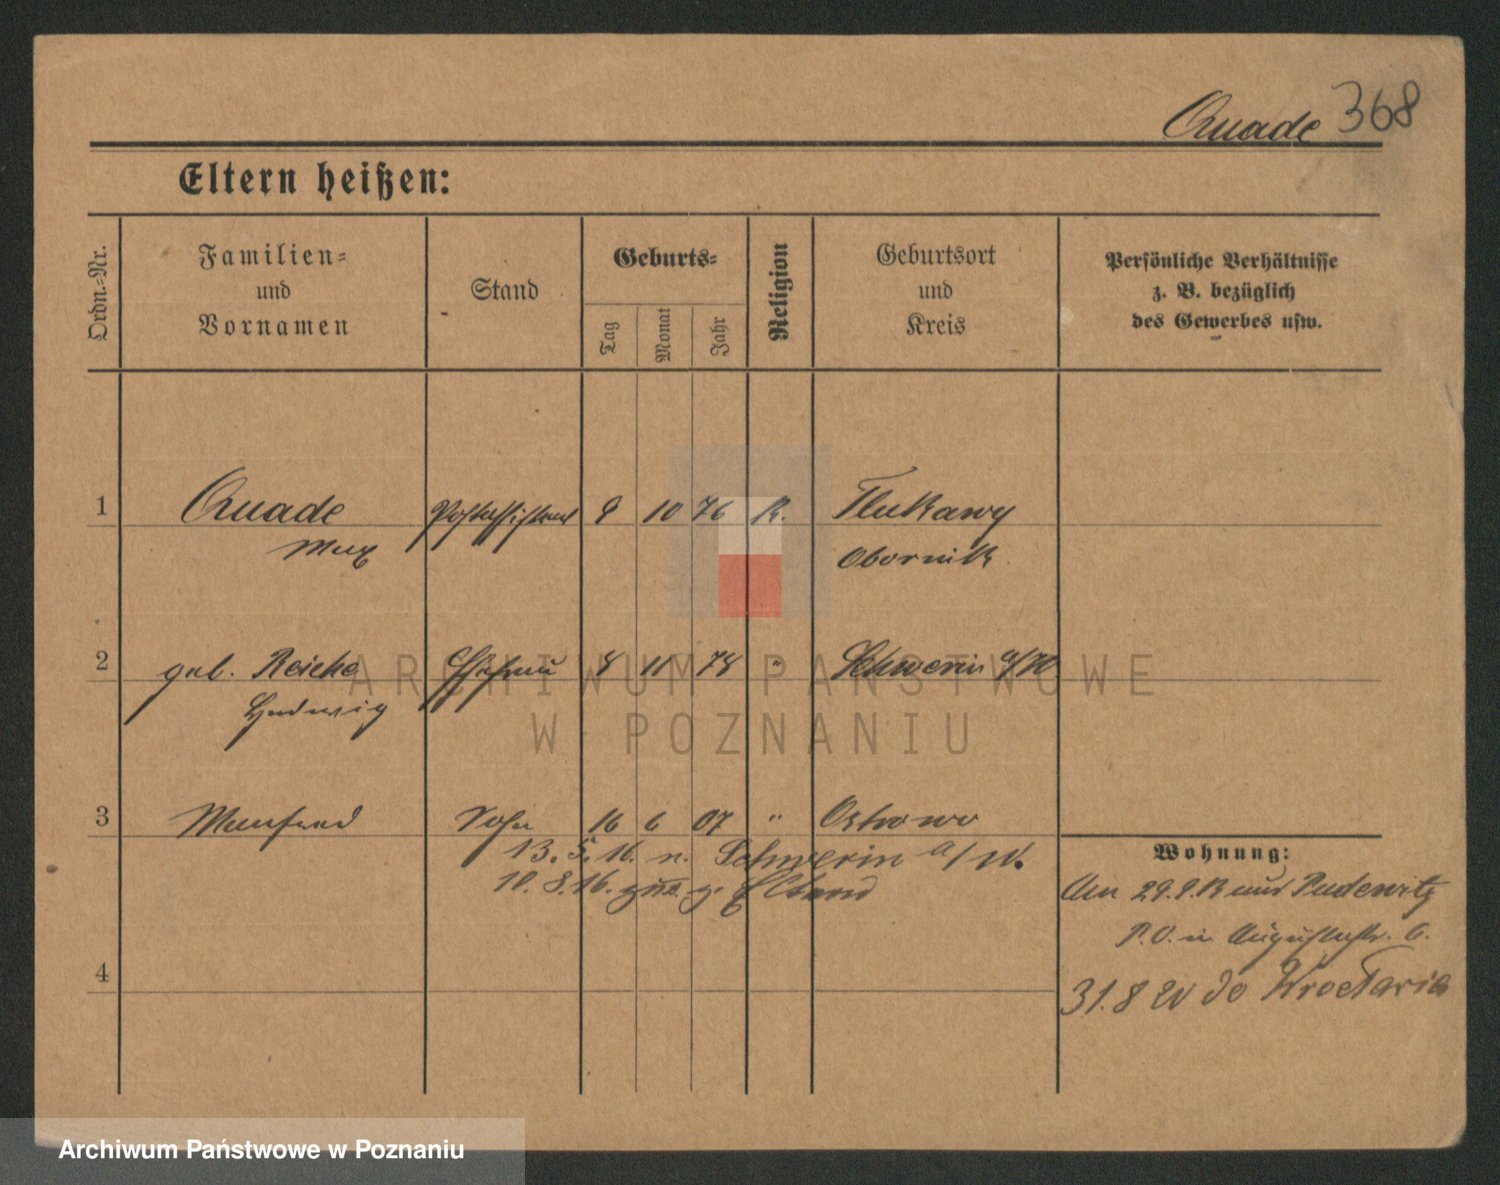 Quade 368
Eltern heißen:
Ordn.-Nr.
Familien-
und
Vornamen
Stand
Geburts-
Tag
Monat
Jahr
Religion
Geburtsort
und
Kreis
Persönliche Verhältnisse
z. B. bezüglich
des Gewerbes usw.
1 Quade Postassistent 9 10 76 K. Tlukawy
Max Obornik
2 geb. Reiche Ehefrau 8 11 78 " Schwerin a/W
Hedwig
3 Manfred Sohn 16 6 07 " Ostrowo
13. 5. 16. n. Schwerin a/W.
10. 8. 16. zur. z.
Wohnung:
Am 29.9.13 aus Pudewitz
P.O. in Augustastr. 6.
4
31.8 20 do Wrocławia
ARCHIWUM PAŃSTWOWE
W POZNANIU
Archiwum Państwowe w Poznaniu